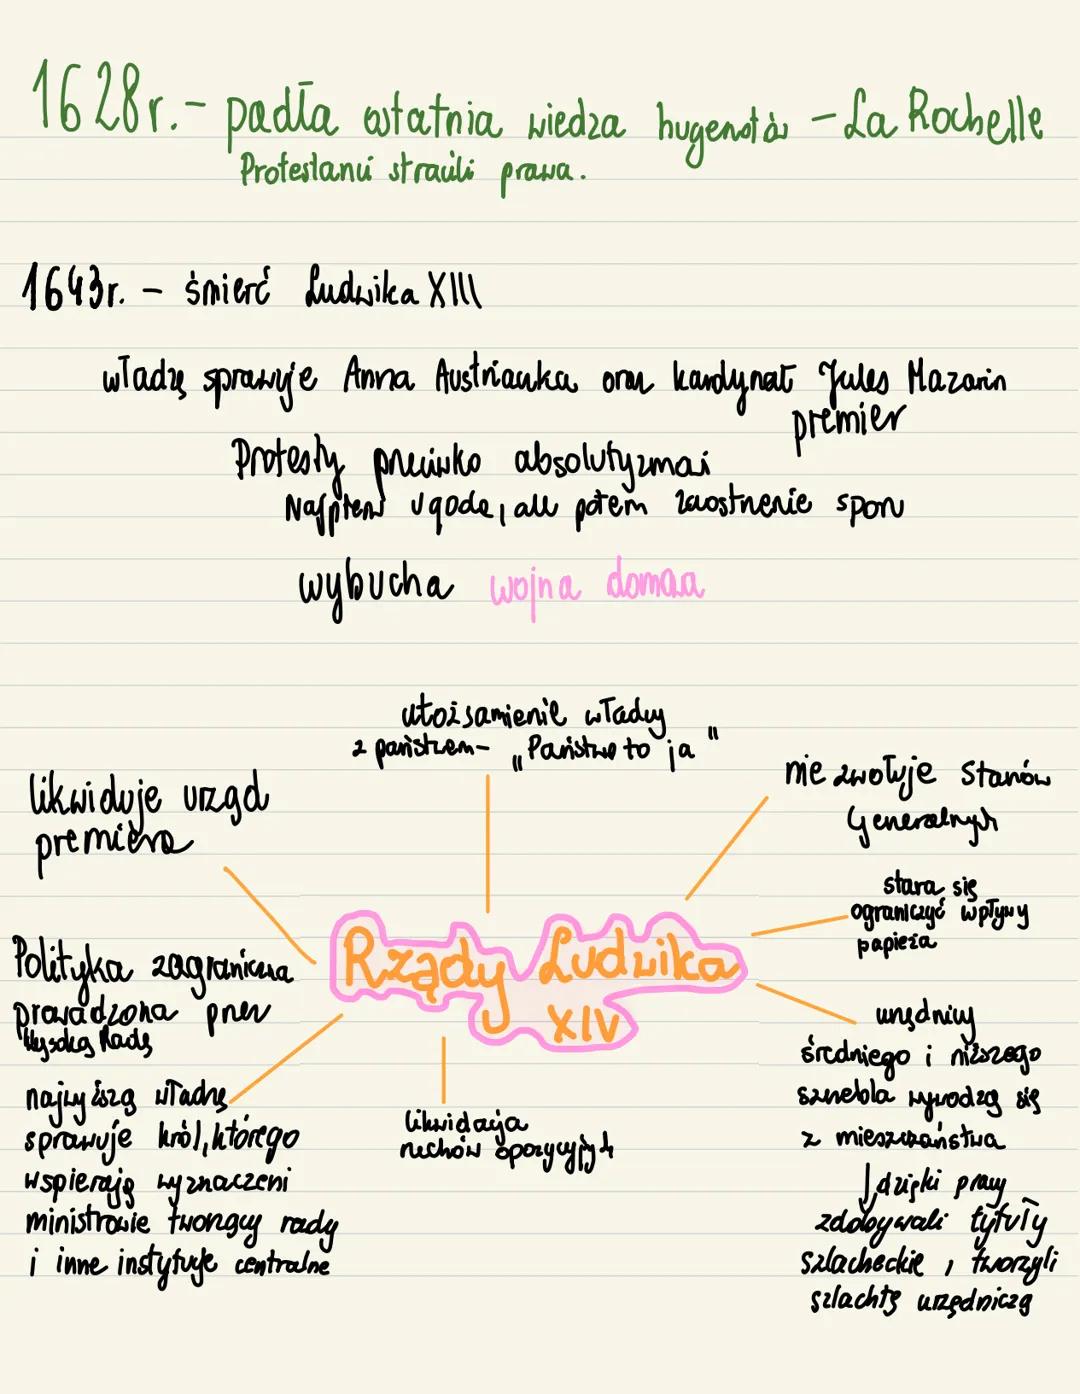 1628r. - padła ostatnia wiedza hugenotów - La Rochelle
Protestanci stracili prawa.
1643r. - śmierć Ludwika XIII
władzę sprawuje Anna Austriaczka oraz kardynał Jules Mazarin
premier
Protesty przeciwko absolutyzmowi
Najpierw ugoda, ale potem zaostrzenie sporu
wybucha wojna domowa
utożsamienie władzy
z państwem - „Państwo to ja"
likwiduje urząd
premiera
nie zwołuje Stanów
Generalnych
stara się
ograniczyć wpływy
papieża
Rządy Ludwika
XIV
Polityka zagraniczna
prowadzona przez
Wysoką Radę
urzędnicy
średniego i niższego
szczebla wywodzą się
z mieszczaństwa
dzięki pracy
zdobywali tytuły
szlacheckie, tworzyli
szlachtę urzędniczą
najwyższą władzę
sprawuje król, którego
wspierają wyznaczeni
ministrowie tworzący rady
i inne instytucje centralne
likwidacja
ruchów opozycyjnych